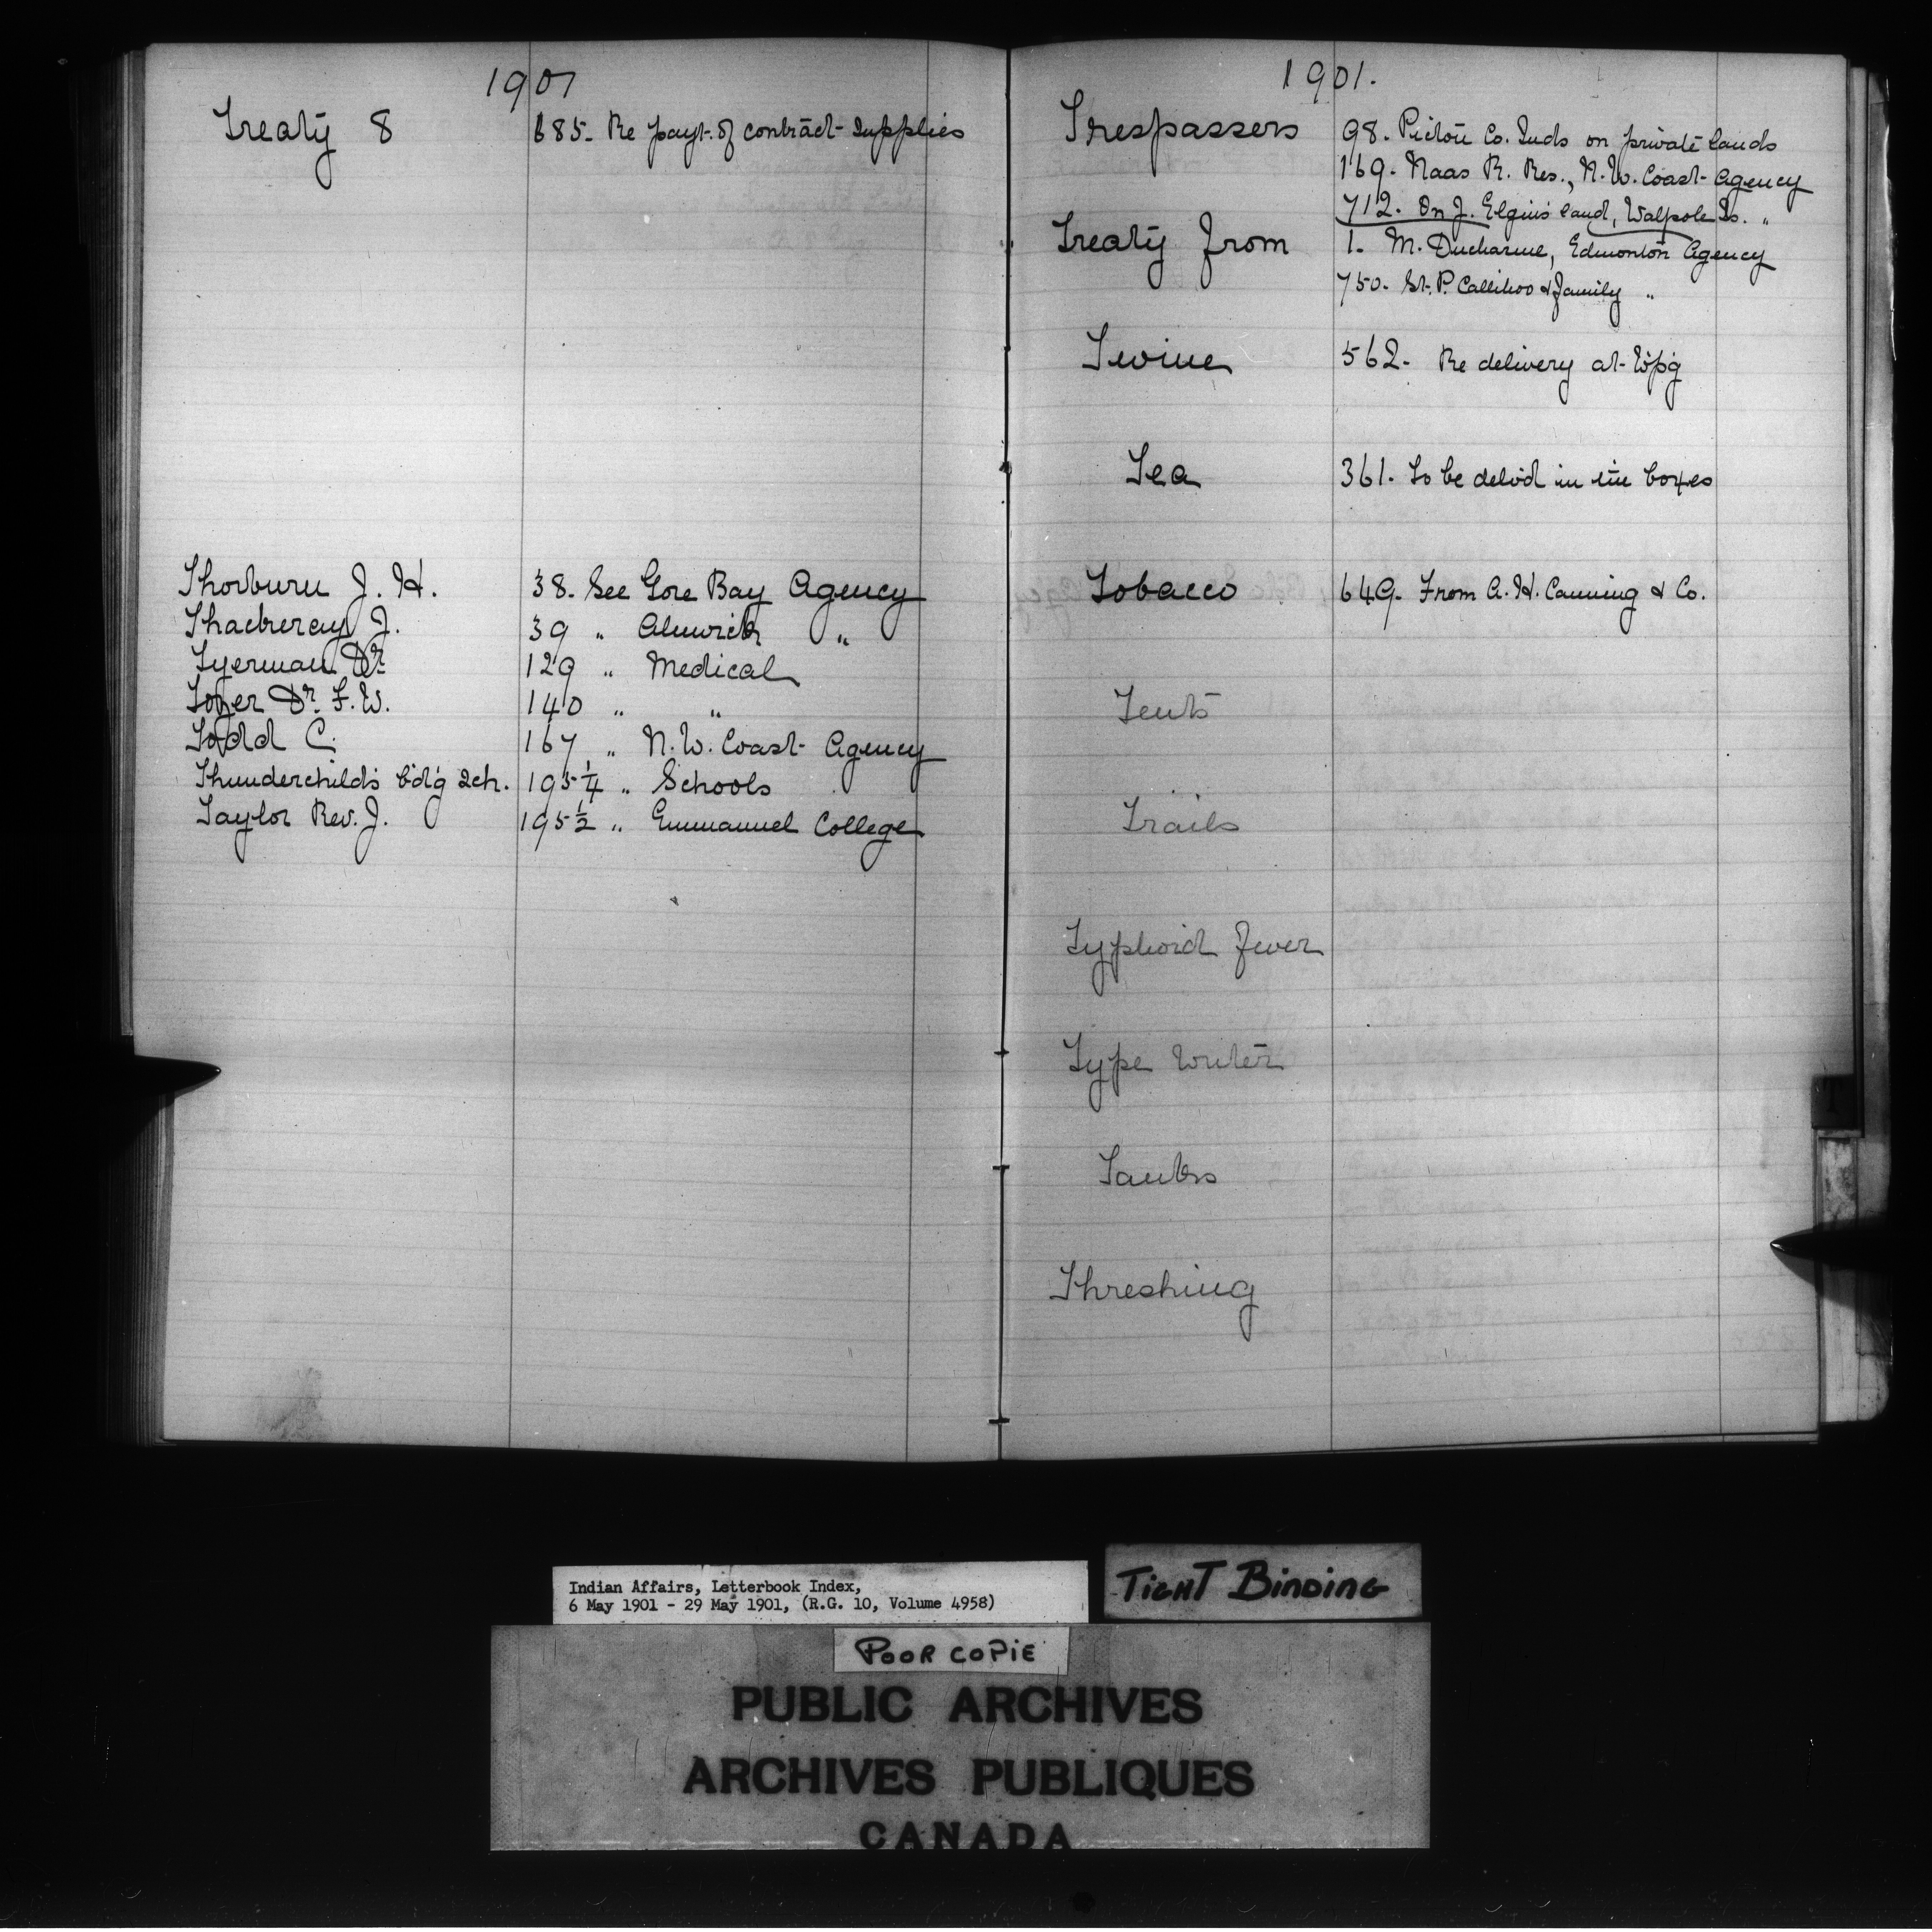 1901
Treaty 8 685- Re payt. of contract supplies
Thorburn J. H. 38. See Gore Bay Agency
Thackeray J. 39 " Alnwick "
Tyerman Dr. 129 " Medical
Dr. F. W. 140 " "
Todd C. 167 " N. W. Coast Agency
Thunderchild's b'd'g Sch. 195 1/4 " Schools
Taylor Rev. J. 195 1/2 " Emmanuel College
1901.
Trespassers 98. Pictou Co. Inds on private lands
169. Naas R. Res., N. W. Coast Agency
712. On J. Elgin's land, Walpole Is. "
Treaty from 1. M. Ducharme, Edmonton Agency
750. St. P. Callihoo & family "
Twine 562. Re delivery at W'p'g
Tea 361. To be deliv'd in tin boxes
Tobacco 649. From A. H. Canning & Co.
Tents
Trails
Typhoid Fever
Type writer
Tanks
Threshing
T
Indian Affairs, Letterbook Index,
6 May 1901 - 29 May 1901, (R.G. 10, Volume 4958)
TIGHT BINDING
POOR COPIE
PUBLIC ARCHIVES
ARCHIVES PUBLIQUES
CANADA